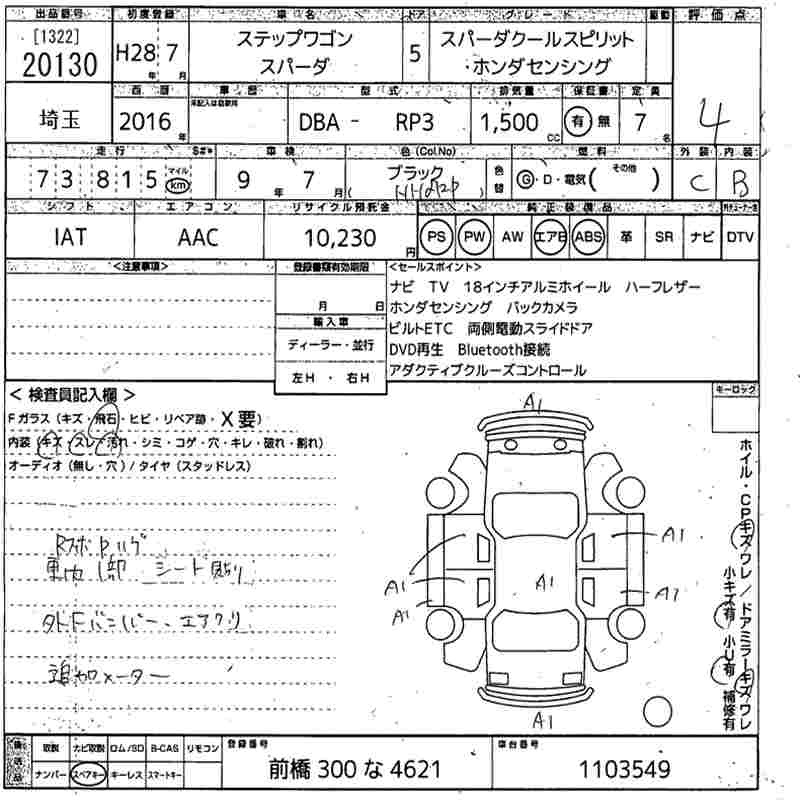 出品番号 初度登録 車名 ドア グレード 駆動 評価点
[1322]
20130 H28年 7月 ステップワゴン スパーダ 5 スパーダクールスピリット ホンダセンシング 4
西暦 車歴 型式 排気量 保証書 定員
未記入は自家用
埼玉 2016年 DBA - RP3 1,500cc 有 無 7名
走行 S#* 車検 色(Col No) 燃料 外装 内装
73815 マイル km 9年 7月 ブラック 色替 G・D・電気( その他 ) C B
シフト エアコン リサイクル預託金 純正装備品
IAT AAC 10,230円 PS PW AW エアB ABS 革 SR ナビ DTV
<注意事項> 登録書類有効期限 <セールスポイント>
月 日
輸入車
ディーラー・並行
左H ・ 右H
ナビ TV 18インチアルミホイール ハーフレザー
ホンダセンシング バックカメラ
ビルトETC 両側電動スライドドア
DVD再生 Bluetooth接続
アダクティブクルーズコントロール
< 検査員記入欄 > キーロック
Fガラス(キズ・飛石・ヒビ・リペア跡・X要)
内装(キズ・スレ・汚れ・シミ・コゲ・穴・キレ・破れ・割れ)
オーディオ(無し・穴)/タイヤ(スタッドレス)
車内 1部 シート貼り
外Fバンパー、エアクリ
追加メーター
A1
A1
A1
A1
A1
A1
A1
A1
ホイル・CPキズワレ/ドアミラーキズワレ
小キズ有 小U有 補修有
後送品 取説 ナビ取説 ロム/SD B-CAS リモコン
ナンバー スペアキー キーレス スマートキー
登録番号 前橋 300 な 4621
車台番号 1103549